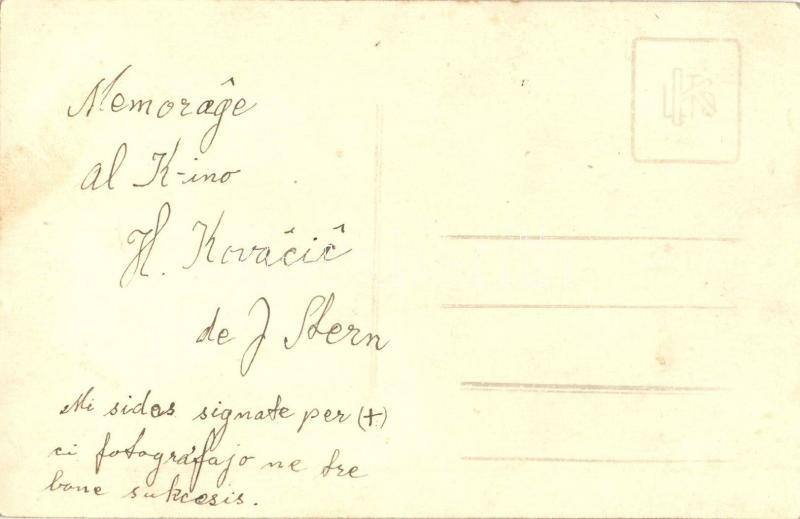 Memoraĝe
al K-ino
H. Kovaĉiĉ
de J Stern
Mi sidas signate per (+)
ci fotografajo ne tre
bone sukcesis.